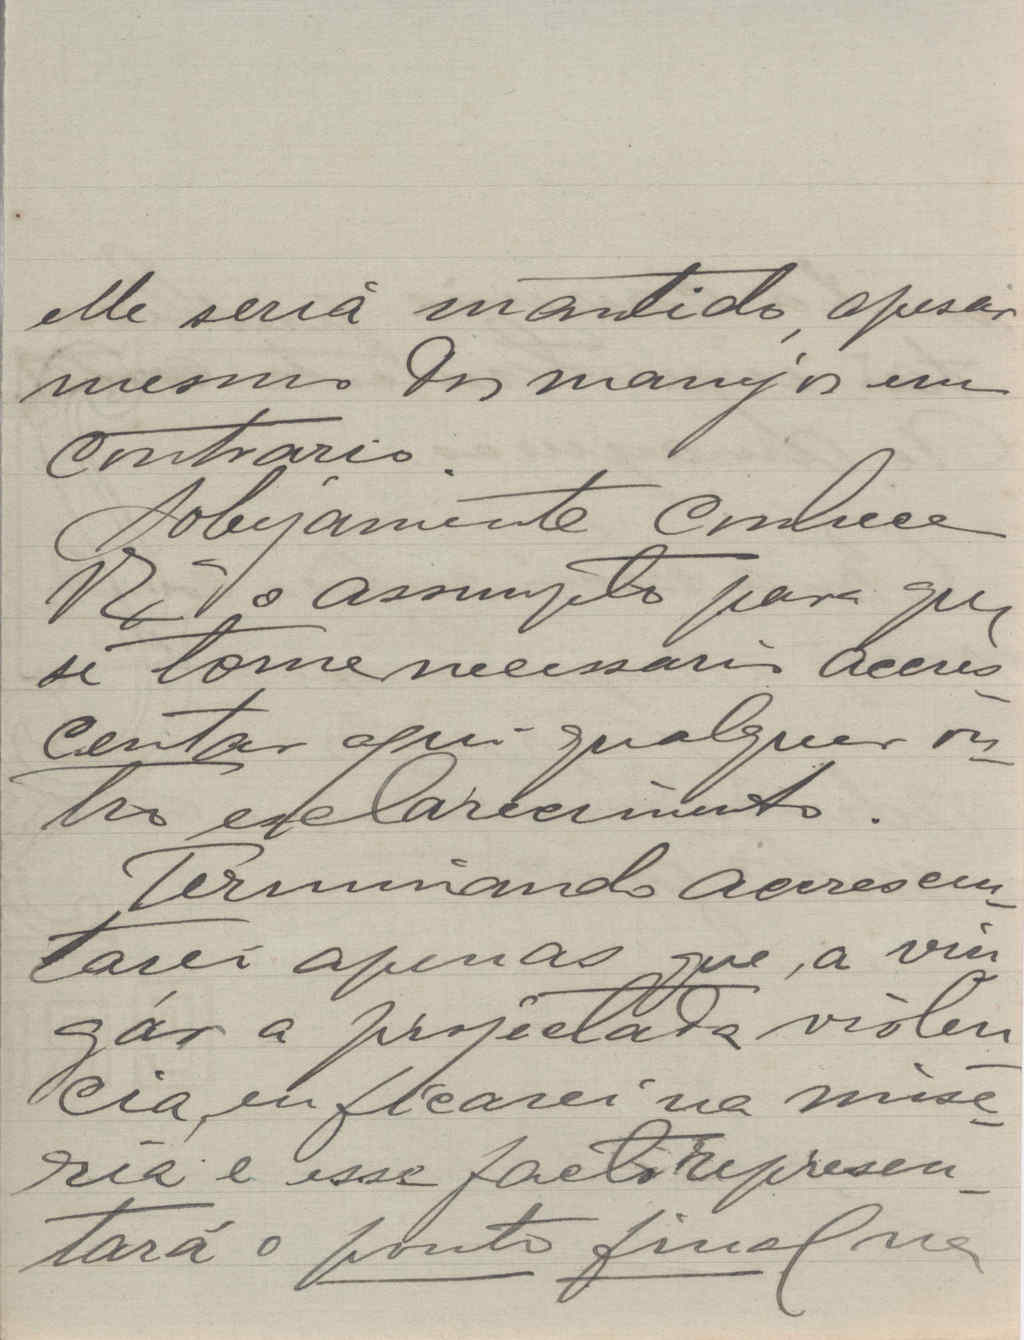 elle seriá mantido, apesar
mesmo dos manejos em
contrario.
Sobejamente conhece
V. Ex.ª o assumpto para que
se torne necessario accres-
centar aqui qualquer ou-
tro esclarecimento.
Terminando accrescen-
tarei apenas que, a vin
gár a projectada violen
cia, eu ficarei na mise-
ria e esse facto represen-
tará o ponto final na